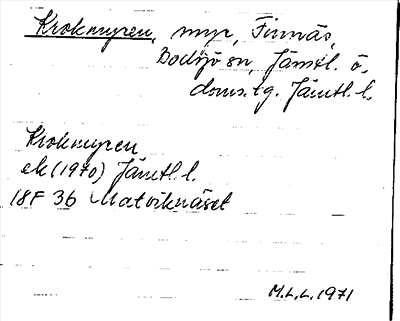 Krokmyren, myr, Finnäs,
Bodsjö sn, Jämtl. ö.
doms.tg. Jämtl. l.
Krokmyren
ek (1970) Jämtl. l.
18F 3b Matviknäset
M.L.L. 1971